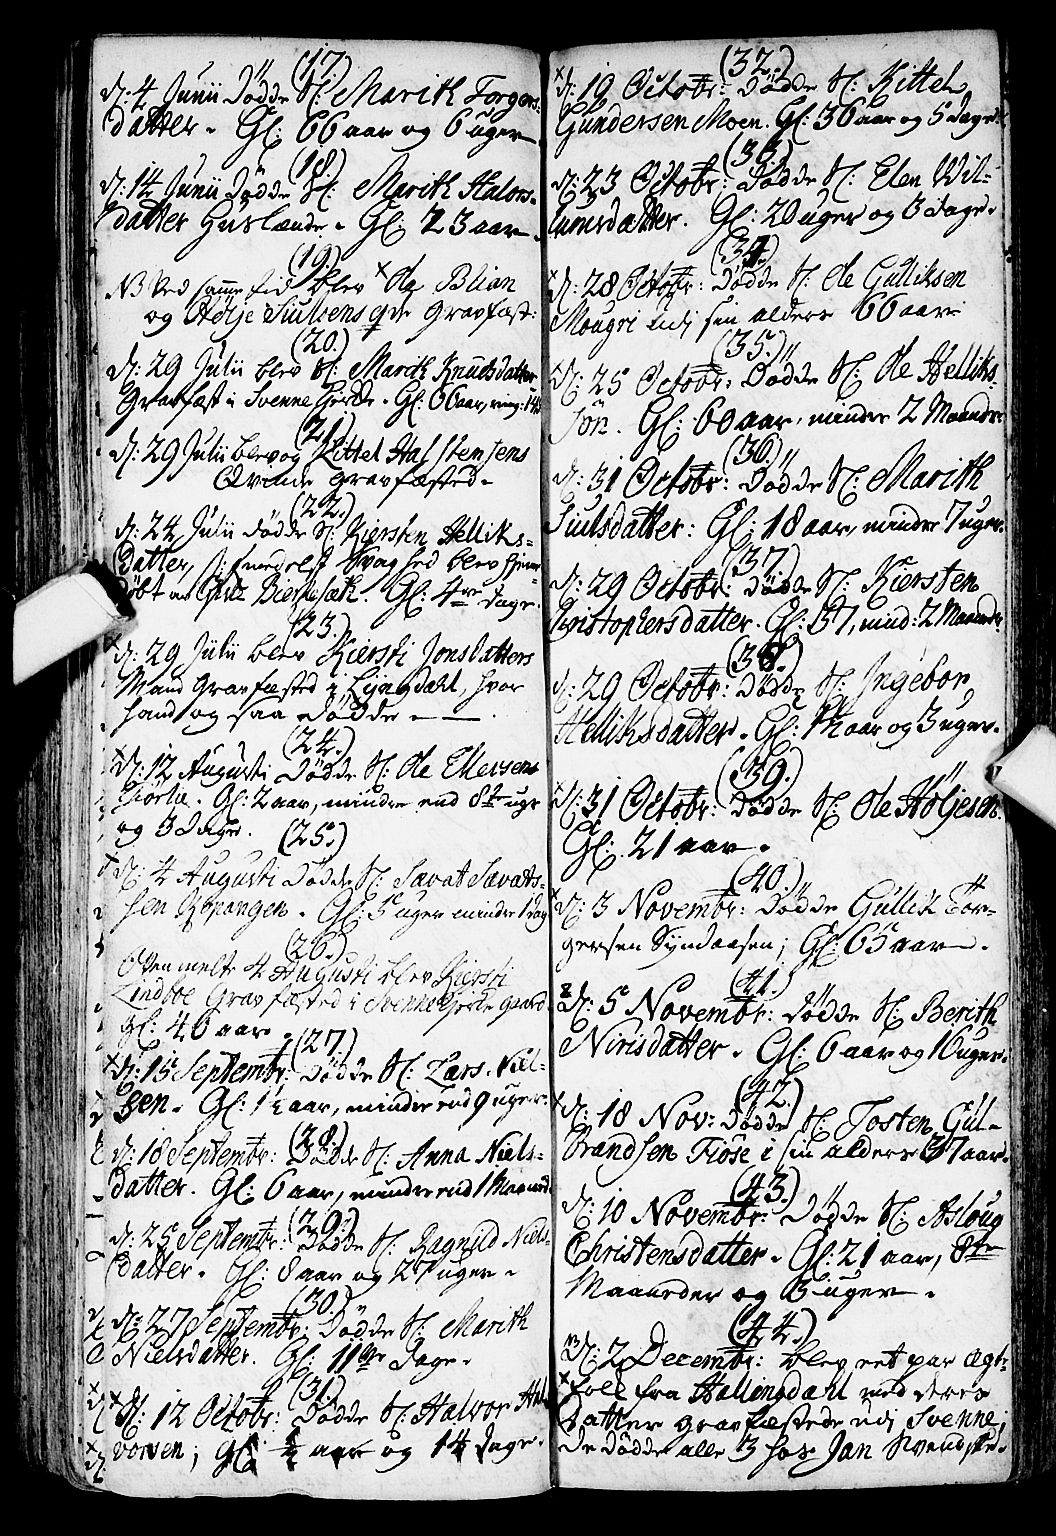 (17.)
D: 4 Junii Dödde S: Marith Torgers-
datter. Gl: 66 aar og 6 uger
(18.)
D: 14 Junii Dödde S: Marith Halvors-
datter Gl: 23 aar.
(19.)
NB Ved samme tid blev Ole Blian
og Gravfæst:
(20.)
D: 29 Julii blev S: Marith Knudsdatter
Gravfæst i Svenne Gierde. Gl: 66 aar,
(21.)
D: 29 Julii blev og Kittel Halstensens
Qvinde gravfæsted.
(22.)
D: 24 Julii Dödde S: Kiersten Helliks-
datter, blev hjemme-
döbt af Gl: 4re dage.
(23.)
D: 29 Julii blev Kiersti Jonsdatters
Mand Gravfæsted i Lyngdahl, hvor
hand og saa Dödde.
(24.)
D: 12 Augusti Dödde S: Ole Ellevsens
Gl: 2 aar, mindre end 8te uger
og 3 dage.
(25.)
D: 4 Augusti Dödde S: Savat Savats-
sen Gl: 5 uger mindre 1 dag
(26.)
Oven melte 4 Augusti blev Kiersti
Lindboe Gravfæsted i Svenne Gierde gaard
Gl: 40 aar.
(27.)
D: 15 Septembr: Dödde S: Lars Niel-
sen. Gl: 1½ aar, mindre end 9 uger.
(28.)
D: 18 Septembr: Dödde S: Anna Niels-
datter. Gl: 6 aar, mindre end 1 Maaned.
(29.)
D: 25 Septembr: Dödde S: Ragnild Niels-
datter. Gl: 8 aar og 27 uger.
(30.)
D: 27 Septembr: Dödde S: Marith
Nielsdatter. Gl: 11 dage.
(31.)
D: 12 Octobr: Dödde S: Halvor Hal-
vorsen; Gl: ½ aar og 14 dage.
(32.)
D: 19 Octobr: Dödde S: Kittel
Gundersen Moen. Gl: 36 aar og 5 dage.
(33.)
D: 23 Octobr: Dödde S: Elen Wil-
lumsdatter. Gl: 20 uger og 3 dage.
(34.)
D: 28 Octobr: Dödde S: Ole Gulliksen
Mougri udi sin alders 66 aar
(35.)
D: 25 Octobr: Dödde S: Ole Helliks-
sön. Gl: 60 aar, mindre 2 Maaneder
(36.)
D: 31 Octobr: Dödde S: Marith
Juulsdatter: Gl: 18 aar, mindre 7 uger.
(37.)
D: 29 Octobr: Dödde S: Kiersten
Kristophersdatter. Gl: 37, mind: 2 Maaneder
(38.)
D: 29 Octobr: Dödde S: Ingebor
Helliksdatter. Gl: aar og 3 uger.
(39.)
D: 31 Octobr: Dödde S: Ole Höljesen.
Gl: 21 aar.
(40.)
D: 3 Novembr: Dödde Gullik Tor-
gersen Gl: 65 aar.
(41.)
D: 5 Novembr: Dödde S: Berith
Nirisdatter. Gl: 6 aar og 16 uger.
(42.)
D: 18 Nov: Dödde S: Tosten Gul-
brandsen Fiöse i sin alders 37 aar.
(43.)
D: 10 Novembr: Dödde S: Asloug
Christensdatter. Gl: 21 aar, 8te
Maaneder og 3 uger.
(44.)
D: 2 Decembr: blev eet par Ægte-
folk fra Hallingdahl med deres
Datter gravfæstede udi Svenne;
de Dödde alle 3 hos Jan